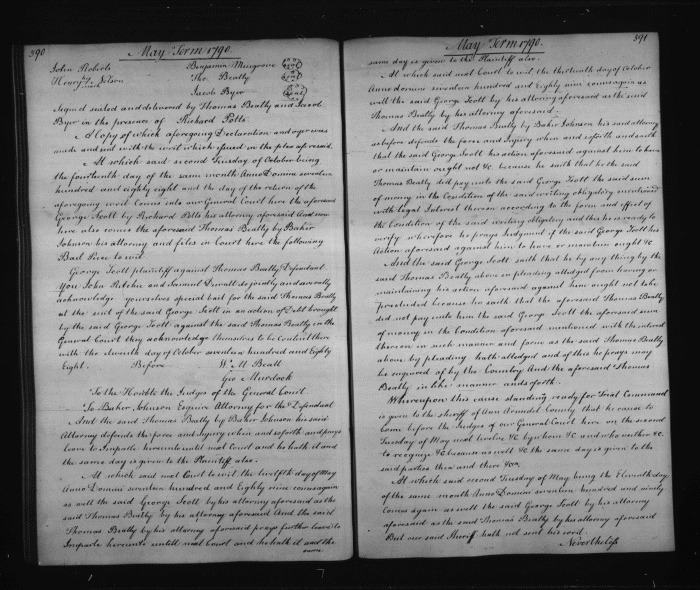 390
May Term 1790.
John Roberts Benjamin Musgrove
Henry Nelson Thr. Beatty
Jacob Byer
Signed sealed and delivered by Thomas Beatty and Jacob
Byer in the presence of Richard Potts
A Copy of which aforegoing Declaration and oyer was
made and sent with the writ which issued in the plea aforesaid.
At which said second Tuesday of October being
the fourteenth day of the same month Anno Domini seventeen
hundred and eighty eight and the day of the return of the
aforegoing writ Comes into our General Court here the aforesaid
George Scott by Richard Potts his attorney aforesaid And now
here also comes the aforesaid Thomas Beatty by Baker
Johnson his attorney and files in Court here the following
Bail Piece to wit
George Scott plaintiff against Thomas Beatty Defendant
You John Ritchie and Samuel Duvall do jointly and severally
acknowledge yourselves special bail for the said Thomas Beatty
at the suit of the said George Scott in an action of Debt brought
by the said George Scott against the said Thomas Beatty in the
General Court they acknowledge themselves to be Content there
with the eleventh day of October seventeen hundred and Eighty
Eight. Before W. M. Beall
Geo Murdock
To the Honble the Judges of the General Court
To Baker Johnson Esquire Attorney for the Defendant
And the said Thomas Beatty by Baker Johnson his said
Attorney defends the force and Injury when and soforth and prays
leave to Imparle hereunto until next Court and he hath it and
the same day is given to the Plaintiff also.
At which said next Court to wit the twelfth day of May
Anno Domini seventeen hundred and Eighty nine comes again
as well the said George Scott by his attorney aforesaid as the
said Thomas Beatty by his attorney aforesaid And the said
Thomas Beatty by his attorney aforesaid prays further leave to
Imparle hereunto untill next Court and he hath it and the
same
391
May Term 1790.
same day is given to the Plaintiff also.
At which said next Court to wit the thirteenth day of October
Anno domini seventeen hundred and Eighty nine comes again as
well the said George Scott by his attorney aforesaid as the said
Thomas Beatty by his attorney aforesaid.
And the said Thomas Beatty by Baker Johnson his said attorney
as before defends the force and injury when and soforth and saith
that the said George Scott his action aforesaid against him to have
or maintain ought not &c. because he saith that he the said
Thomas Beatty did pay unto the said George Scott the said sum
of money in the Condition of the said writing obligatory mentioned
with legal Interest thereon according to the form and effect of
the Condition of the said writing obligatory and this he is ready to
verify wherefore he prays Judgment if the said George Scott his
Action aforesaid against him to have or maintain ought &c
And the said George Scott saith that he by any thing by the
said Thomas Beatty above in pleading alledged from having or
maintaining his action aforesaid against him ought not to be
precluded because he saith that the aforesaid Thomas Beatty
did not pay unto him the said George Scott the aforesaid sum
of money in the Condition aforesaid mentioned with the interest
thereon in such manner and form as the said Thomas Beatty
above by pleading hath alledged and of this he prays may
be enquired of by the Country And the aforesaid Thomas
Beatty in like manner and soforth.
Whereupon this cause standing ready for Trial Command
is given to the sheriff of Ann Arundel County that he cause to
come before the Judges of our General Court here on the second
Tuesday of May next twelve &c by whom &c and who neither &c.
to recognize &c because as well &c the same day is given to the
said parties then and there &ca.
At which said second Tuesday of May being the Eleventh day
of the same month Anno Domini seventeen hundred and ninety
Comes again as well the said George Scott by his attorney
aforesaid as the said Thomas Beatty by his attorney aforesaid
But our said Sheriff hath not sent his word.
Nevertheless